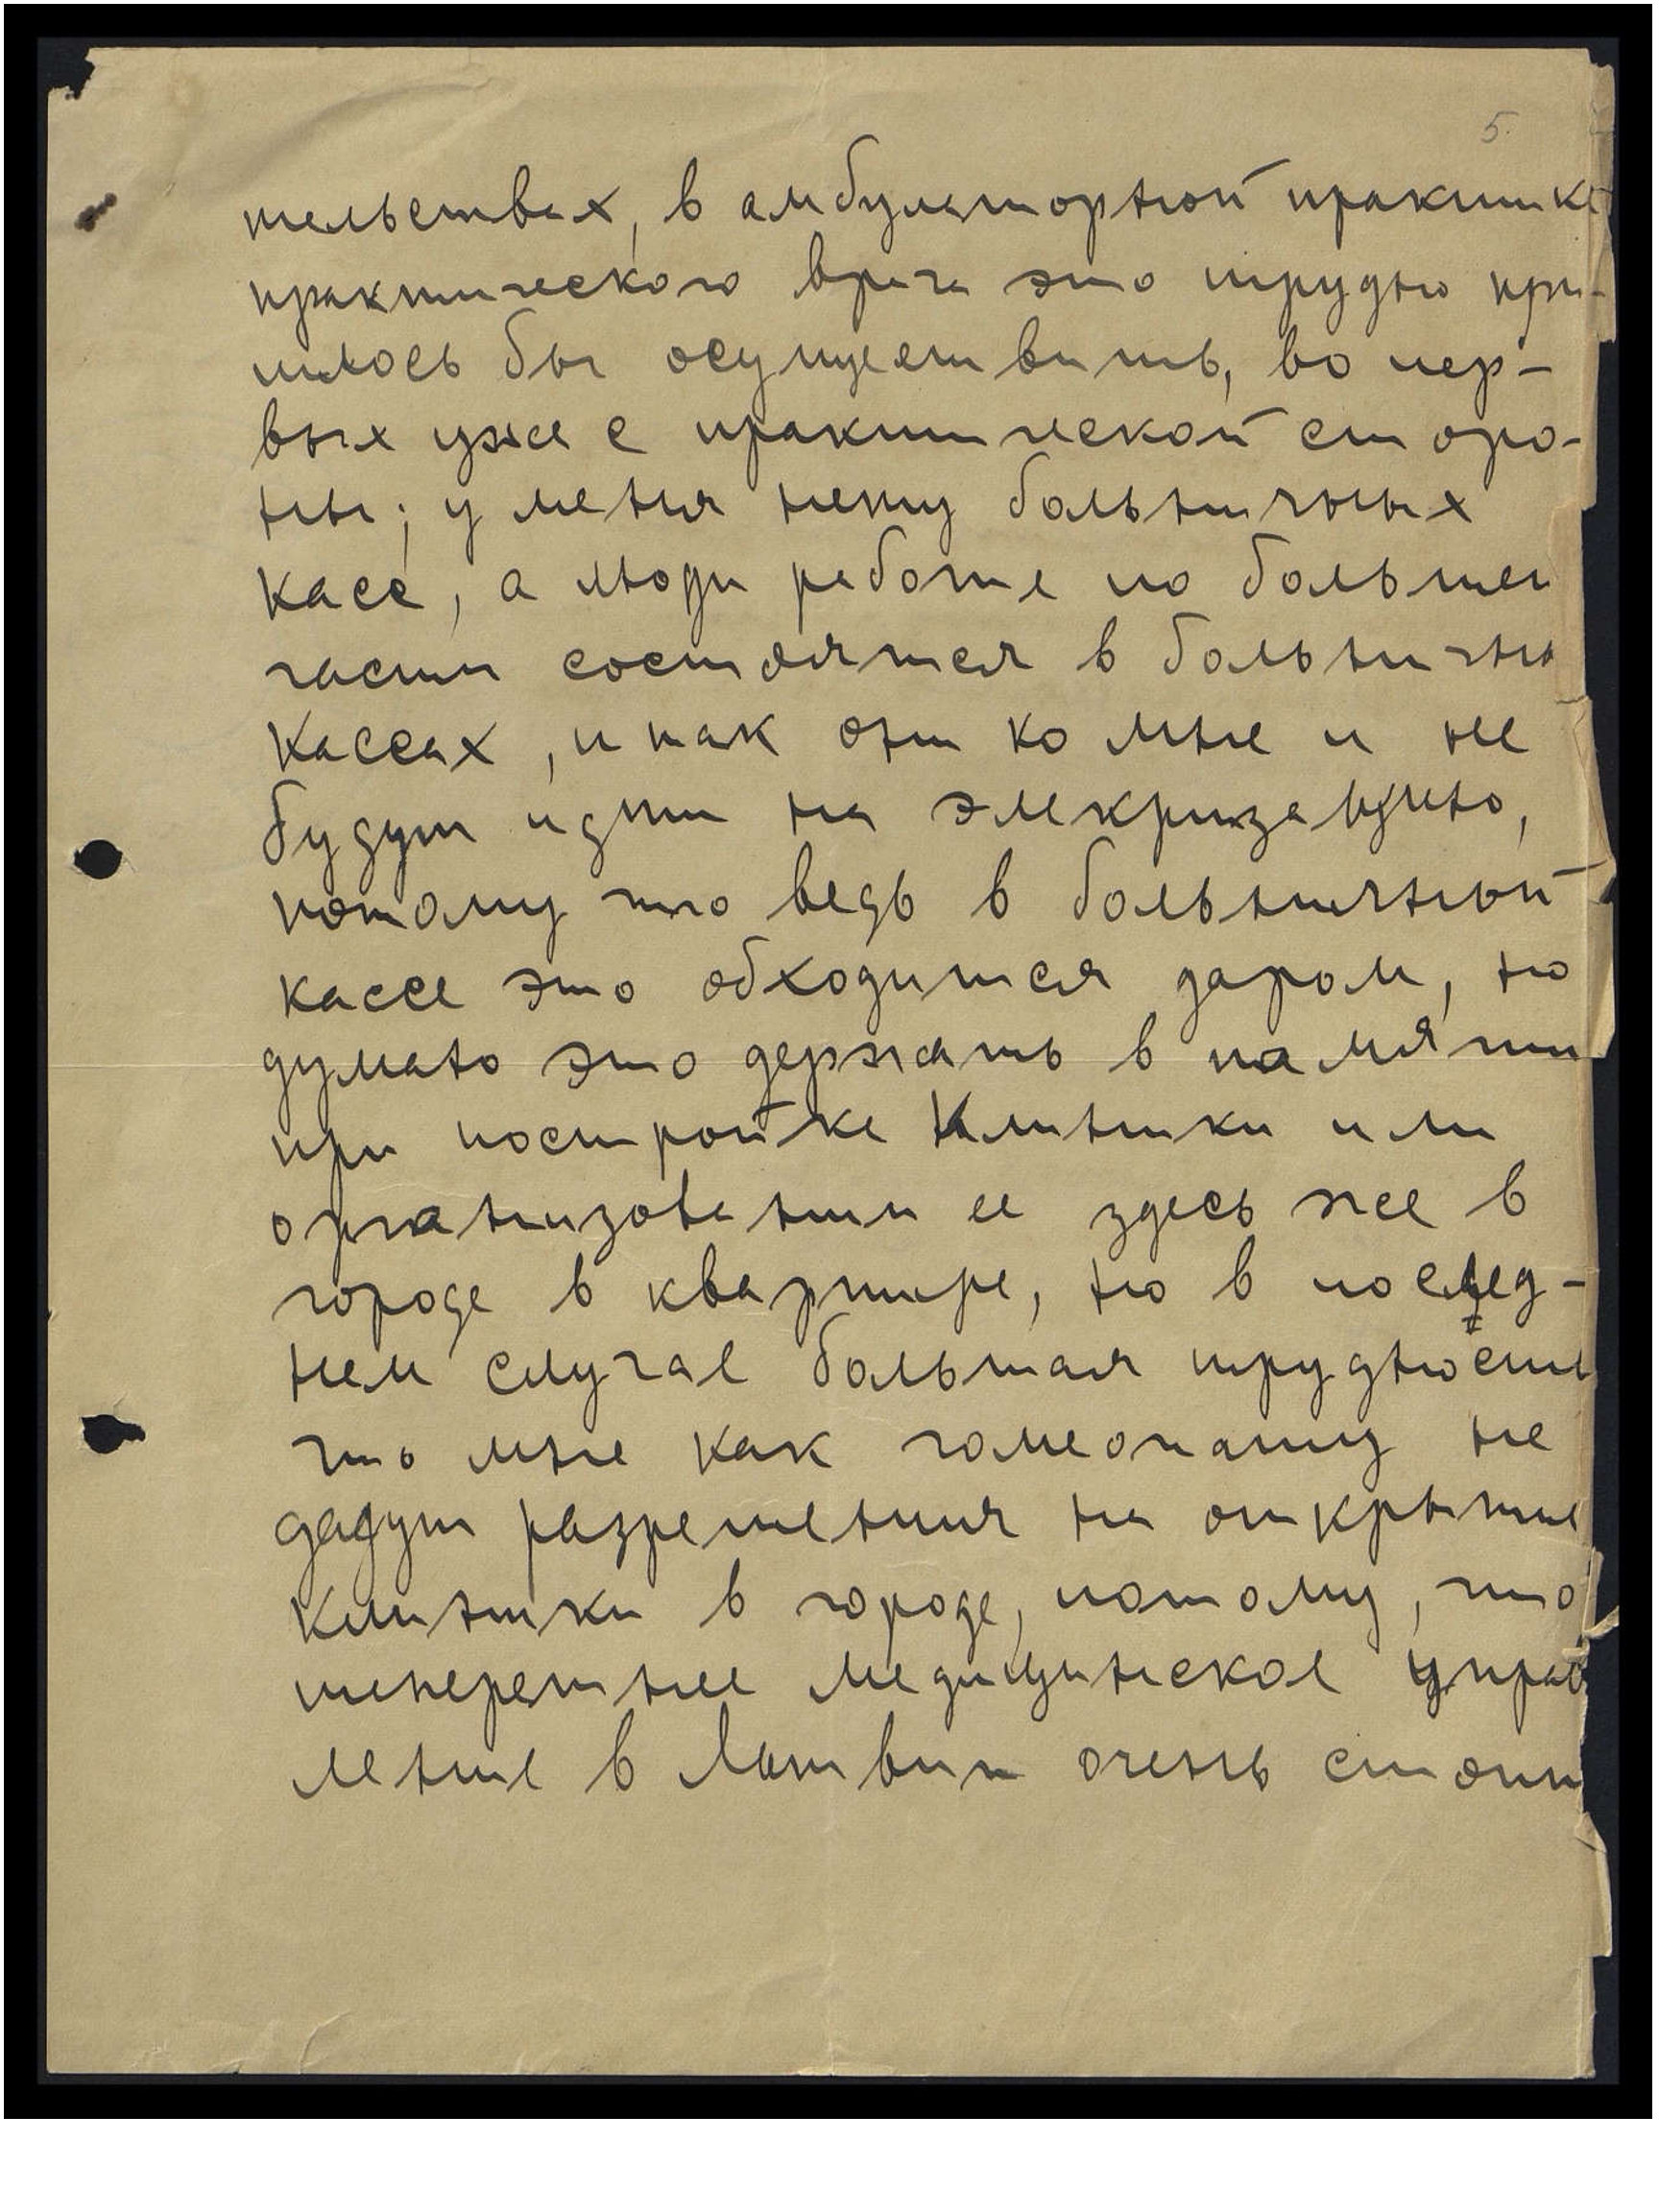 5.
тельствах, в амбулаторной практике
практического врача это трудно при-
шлось бы осуществить, во пер-
вых уже с практической сторо-
ны; у меня нету больничных
касс, а люди работе по большей
части состоятся в больничны
кассах, и так они ко мне и не
будут идти на элекризацию,
потому что ведь в больничной
кассе это обходится даром, но
думаю это держать в памяти
при постройке Клиники или
организовании ее здесь же в
городе в квартире, но в послед-
нем случае большая трудность
что мне как гомеопату не
дадут разрешения на открытие
Клиники в городе, потому, что
теперешнее медицинское управ
ление в Латвии очень стоит